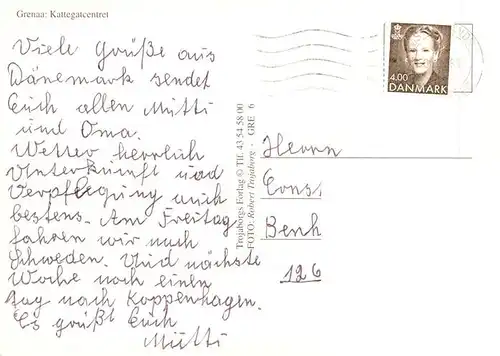 Grenaa: Kattegatcentret
Viele Grüße aus
Dänemark sendet
Euch allen Mutti
und Oma.
Wetter herrlich
Unterkunft und
Verpflegung auch
bestens. Am Freitag
fahren wir nach
Schweden. Und nächste
Woche noch einen
Tag nach Koppenhagen.
Es grüßt Euch
Mutti
Trojaborgs Forlag © Tlf. 43 54 58 00
FOTO: Robert Trojaborg · GRE 6
4.00
DANMARK
Herrn
Ernst
Benh
126